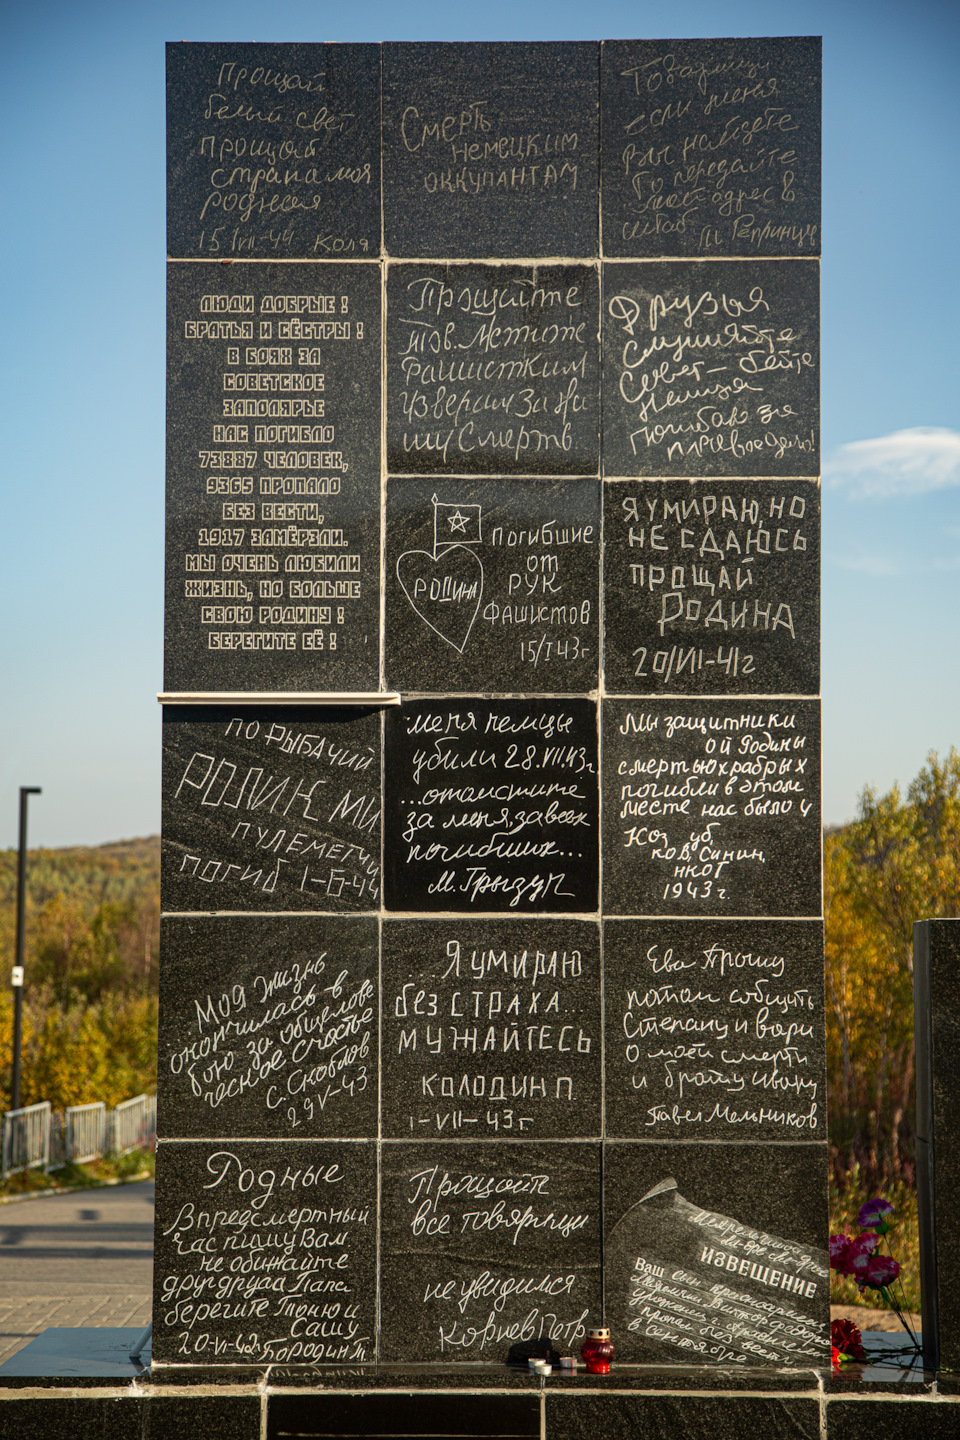 Прощай
белый свет
прощай
страна моя
родная
15/VII-44 Коля
Смерть
немецким
оккупантам
Товарищи
если меня
вы найдете
То передайте
мой адрес в
штаб
ЛЮДИ ДОБРЫЕ!
БРАТЬЯ И СЁСТРЫ!
В БОЯХ ЗА
СОВЕТСКОЕ
ЗАПОЛЯРЬЕ
НАС ПОГИБЛО
73887 ЧЕЛОВЕК,
9365 ПРОПАЛО
БЕЗ ВЕСТИ,
1917 ЗАМЁРЗЛИ.
МЫ ОЧЕНЬ ЛЮБИЛИ
ЖИЗНЬ, НО БОЛЬШЕ
СВОЮ РОДИНУ!
БЕРЕГИТЕ ЕЁ!
Прощайте
тов. Мстите
Фашистким
Изверам За На
шу Смерть.
Друзья
слушайте
Совет - бейте
Немца
Погибаю за
правое дело!
РОДИНА
Погибшие
от
РУК
Фашистов
15/I 43г
Я УМИРАЮ, НО
НЕ СДАЮСЬ
ПРОЩАЙ
РОДИНА
20/VII-41г
ПО РЫБАЧИЙ
РОДИК МИ
ПУЛЕМЕТЧИ
ПОГИБ 1-6-44
меня немцы
убили 28.VII.43г.
...отомстите
за меня, за всех
погибших...
М. Грызун
Мы защитники
ой Родины
смертью храбрых
погибли в этом
месте нас было 4
Коз уб,
ков, Синин,
нког
1943г.
...Моя жизнь
окончилась в
бою за общелове
ческое счастье
С. Скобов
29 V-43
...Я УМИРАЮ
БЕЗ СТРАХА...
МУЖАЙТЕСЬ
КОЛОДИН П.
1-VII-43г.
Ева Прошу
потом собщить
Степану и вари
о моей смерти
и брату ивану
Павел Мельников
Родные
В предсмертный
Час пишу Вам
не обижайте
друг друга Папа
берегите Тоню и
Сашу
20-VI-42 Бородин Т.
Прощайте
все товарищи
не увидимся
Корнев Петр
ИЗВЕЩЕНИЕ
Ваш сын красноармеец
Виктор Федоро
пропал без вести
в сентябре